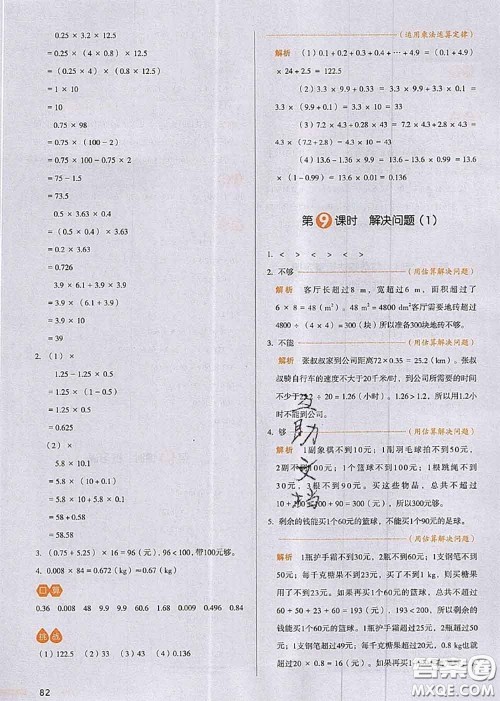 0.25 × 3.2 × 12.5
= 0.25 ×（4 × 0.8）× 12.5
=（0.25 × 4）×（0.8 × 12.5）
= 1 × 10
= 10
0.75 × 98
= 0.75 ×（100-2）
= 0.75 × 100-0.75 × 2
= 75-1.5
= 73.5
0.5 × 3.63 × 0.4
= 0.5 × 0.4 × 3.63
= 0.2 × 3.63
= 0.726
3.9 × 6.1 + 3.9 × 3.9
= 3.9 ×（6.1 + 3.9）
= 3.9 × 10
= 39
2.（1）×
1.25-1.25 × 0.5
= 1.25 ×（1-0.5）
= 1.25 × 0.5
= 0.625
（2）×
5.8 × 10.1
= 5.8 ×（10 + 0.1）
= 5.8 × 10 + 5.8 × 0.1
= 58 + 0.58
= 58.58
3.（0.75 + 5.25）× 16 = 96（元），96＜100，带100元够。
4. 0.008 × 84 = 0.672（kg）≈0.67（kg）
口算
0.36 0.008 48 9.9 9.9 0.6 1.48 0.006 0.496 0.84
挑战
（1）122.5 （2）33 （3）43 （4）0.136
82
（运用乘法运算定律）
解析 （1）0.1 + 0.2 + 0.3 + 0.4 + … + 4.9 =（0.1 + 4.9）
× 24 + 2.5 = 122.5
（2）3.3 × 9.9 + 3.3 × 0.1 = 3.3 ×
（9.9 + 0.1）= 3.3 × 10 = 33
（3）7.2 × 4.3 + 28 × 0.43 = 7.2 × 4.3 + 2.8
× 4.3 =（7.2 + 2.8）× 4.3 = 10 × 4.3 = 43
（4）13.6-13.6 × 0.99 = 13.6 × 1-13.6 × 0.99 = 13.6
×（1-0.99）= 13.6 × 0.01 = 0.136
第9课时 解决问题（1）
1. ＜ ＞ ＞ ＞ ＜ ＞
2. 不够 （用估算解决问题）
解析 客厅长超过8 m，宽超过6 m，面积超过了
6 × 8 = 48（m²）。48 m² = 4800 dm²客厅需要地砖超过
4800 ÷（4 × 4）= 300（块）所以准备300块地砖不够。
3. 不能 （用估算解决问题）
解析 张叔叔家到公司距离72 × 0.35 = 25.2（km）。张叔
叔骑自行车的速度不大于20千米/时，到公司所需要的时间
不少于25.2 ÷ 20 = 1.26（小时）。1.26＞1.2，所以用1.2小
时不能到公司。
4. 够 （用估算解决问题）
解析 1副象棋不到10元；1副羽毛球拍不到50元，
2副不到100元；1个篮球不到100元；1根跳绳不到
30元，3根不到90元。买这些物品，总共不超过
10 + 100 + 100 + 90 = 300（元），所以300元够了。
5. 剩余的钱能买1个60元的篮球，不能买1个90元的足球。
（用估算解决问题）
解析 1瓶护手霜不到30元，2瓶不到60元；1支钢笔不到
50元；每千克糖果不到23元，不到1 kg，则买糖果用
了不到23元。如果再买1个60元的篮球，总共不超过
60 + 50 + 23 + 60 = 193（元），193＜200，所以剩余的钱
能买1个60元的篮球。1瓶护手霜超过25元，2瓶超过50元；
1支钢笔超过49元；每千克糖果超过20元，0.8 kg也就超过
20 × 0.8 = 16（元）；如果再买1个
互助文档
答案圈
MXQE.COM